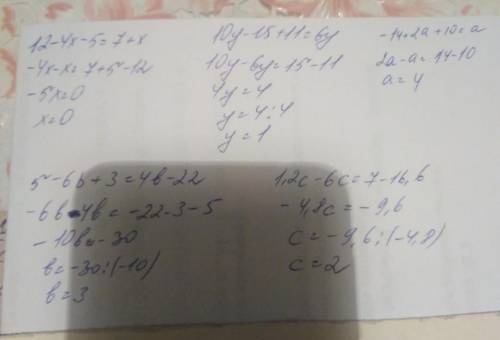 12-4x-5=7+x
-4x-x=7+5-12
-5x=0
x=0
10y-15+11=6y
10y-6y=15-11
4y=4
y=4:4
y=1
-14+2a+10=a
2a-a=14-10
a=4
5-6b+3=4b-22
-6b-4b=-22-3-5
-10b=-30
b=-30:(-10)
b=3
1,2c-6c=7-16,6
-4,8c=-9,6
c=-9,6:(-4,8)
c=2